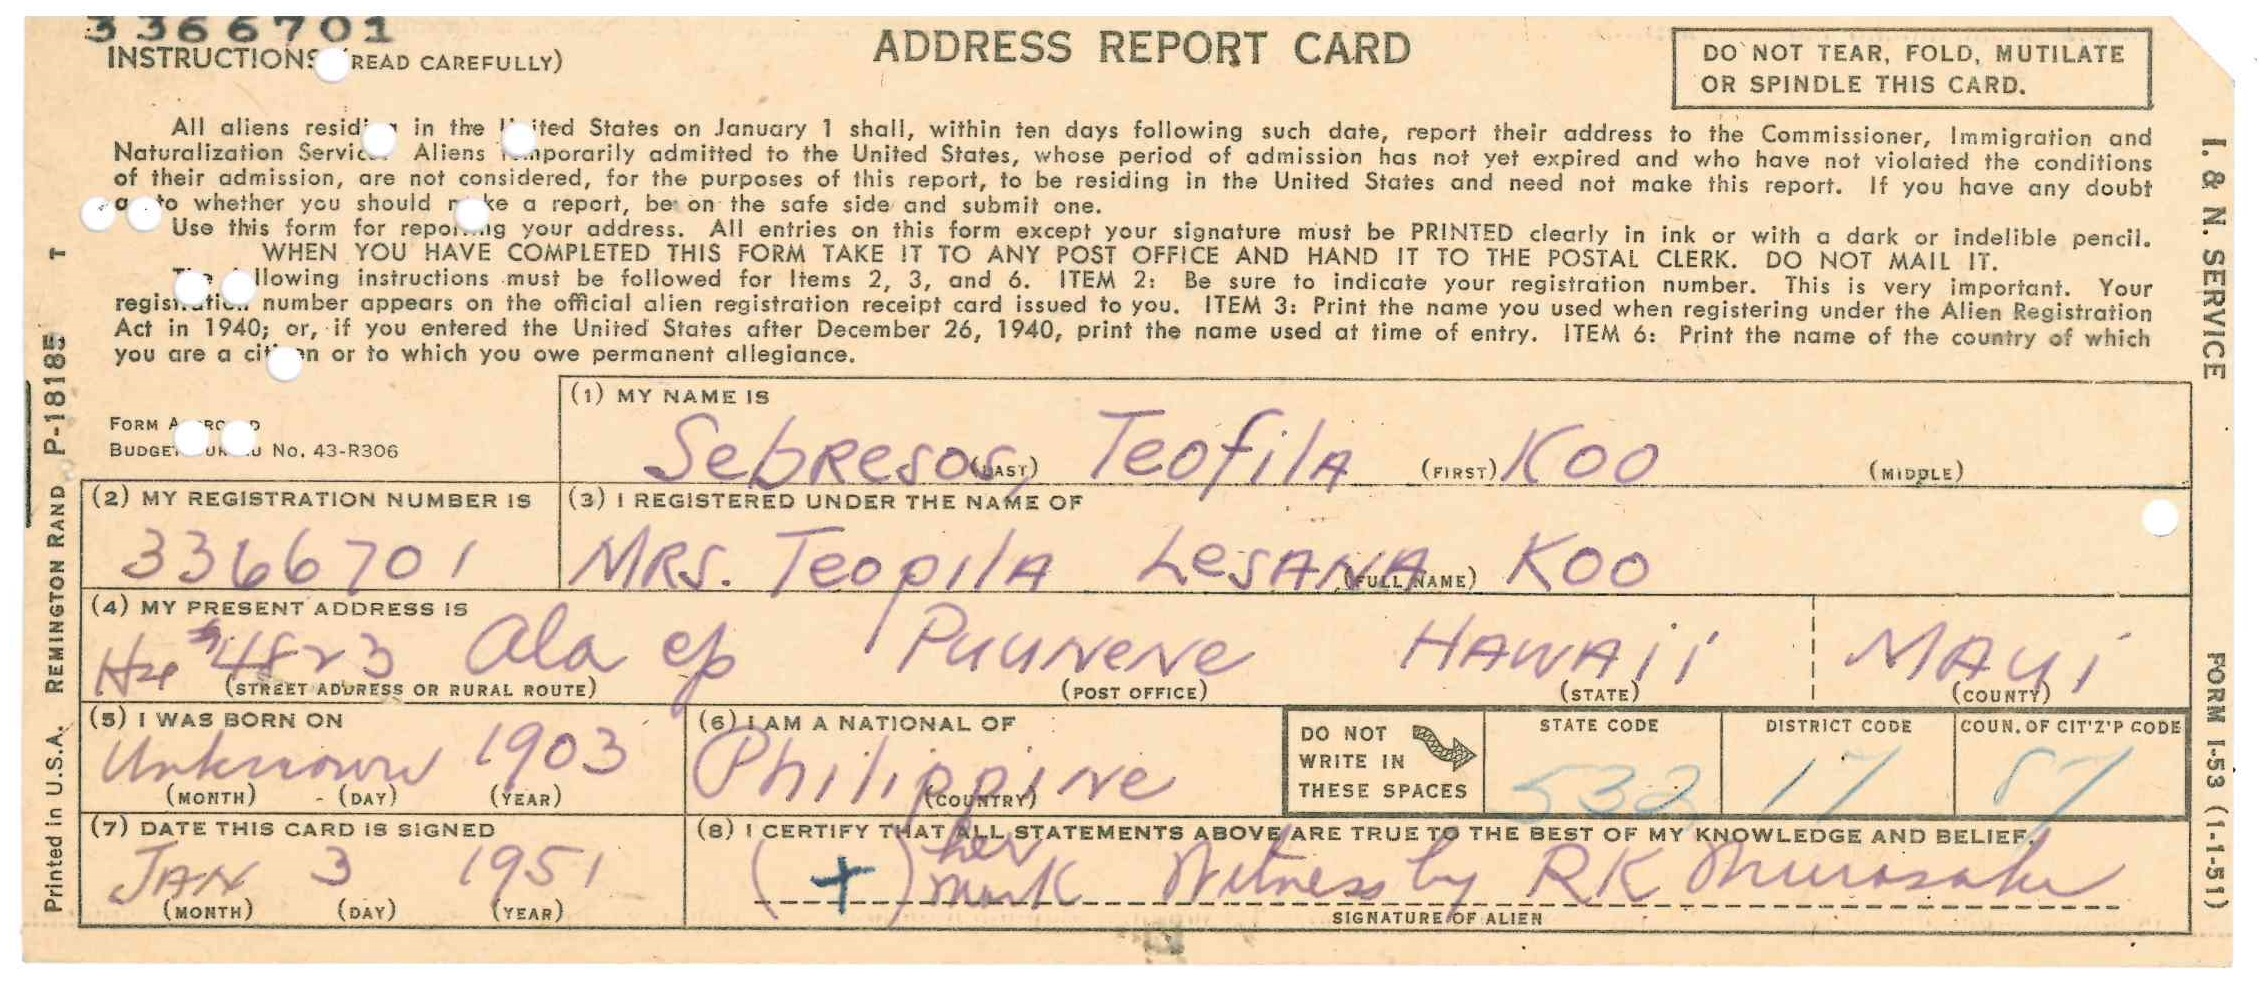 3366701
INSTRUCTIONS (READ CAREFULLY)
ADDRESS REPORT CARD
DO NOT TEAR, FOLD, MUTILATE
OR SPINDLE THIS CARD.
All aliens residing in the United States on January 1 shall, within ten days following such date, report their address to the Commissioner, Immigration and
Naturalization Service. Aliens temporarily admitted to the United States, whose period of admission has not yet expired and who have not violated the conditions
of their admission, are not considered, for the purposes of this report, to be residing in the United States and need not make this report. If you have any doubt
as to whether you should make a report, be on the safe side and submit one.
Use this form for reporting your address. All entries on this form except your signature must be PRINTED clearly in ink or with a dark or indelible pencil.
WHEN YOU HAVE COMPLETED THIS FORM TAKE IT TO ANY POST OFFICE AND HAND IT TO THE POSTAL CLERK. DO NOT MAIL IT.
The following instructions must be followed for Items 2, 3, and 6. ITEM 2: Be sure to indicate your registration number. This is very important. Your
registration number appears on the official alien registration receipt card issued to you. ITEM 3: Print the name you used when registering under the Alien Registration
Act in 1940; or, if you entered the United States after December 26, 1940, print the name used at time of entry. ITEM 6: Print the name of the country of which
you are a citizen or to which you owe permanent allegiance.
FORM APPROVED
BUDGET BUREAU No. 43-R306
(1) MY NAME IS
Sebresos, Teofila Koo
(LAST) (FIRST) (MIDDLE)
(2) MY REGISTRATION NUMBER IS
3366701
(3) I REGISTERED UNDER THE NAME OF
MRS. Teopila Lesana Koo
(FULL NAME)
(4) MY PRESENT ADDRESS IS
4823 Ala cp Puunene Hawaii Maui
(STREET ADDRESS OR RURAL ROUTE) (POST OFFICE) (STATE) (COUNTY)
(5) I WAS BORN ON
Unknown 1903
(MONTH) - (DAY) (YEAR)
(6) I AM A NATIONAL OF
Philippine
(COUNTRY)
DO NOT
WRITE IN
THESE SPACES
STATE CODE
532
DISTRICT CODE
17
COUN. OF CIT'Z'P CODE
87
(7) DATE THIS CARD IS SIGNED
JAN 3 1951
(MONTH) (DAY) (YEAR)
(8) I CERTIFY THAT ALL STATEMENTS ABOVE ARE TRUE TO THE BEST OF MY KNOWLEDGE AND BELIEF.
(+) her mark Witness by RK
SIGNATURE OF ALIEN
Printed in U.S.A. REMINGTON RAND P-18185 T
I. & N. SERVICE
FORM I-53 (1-1-51)